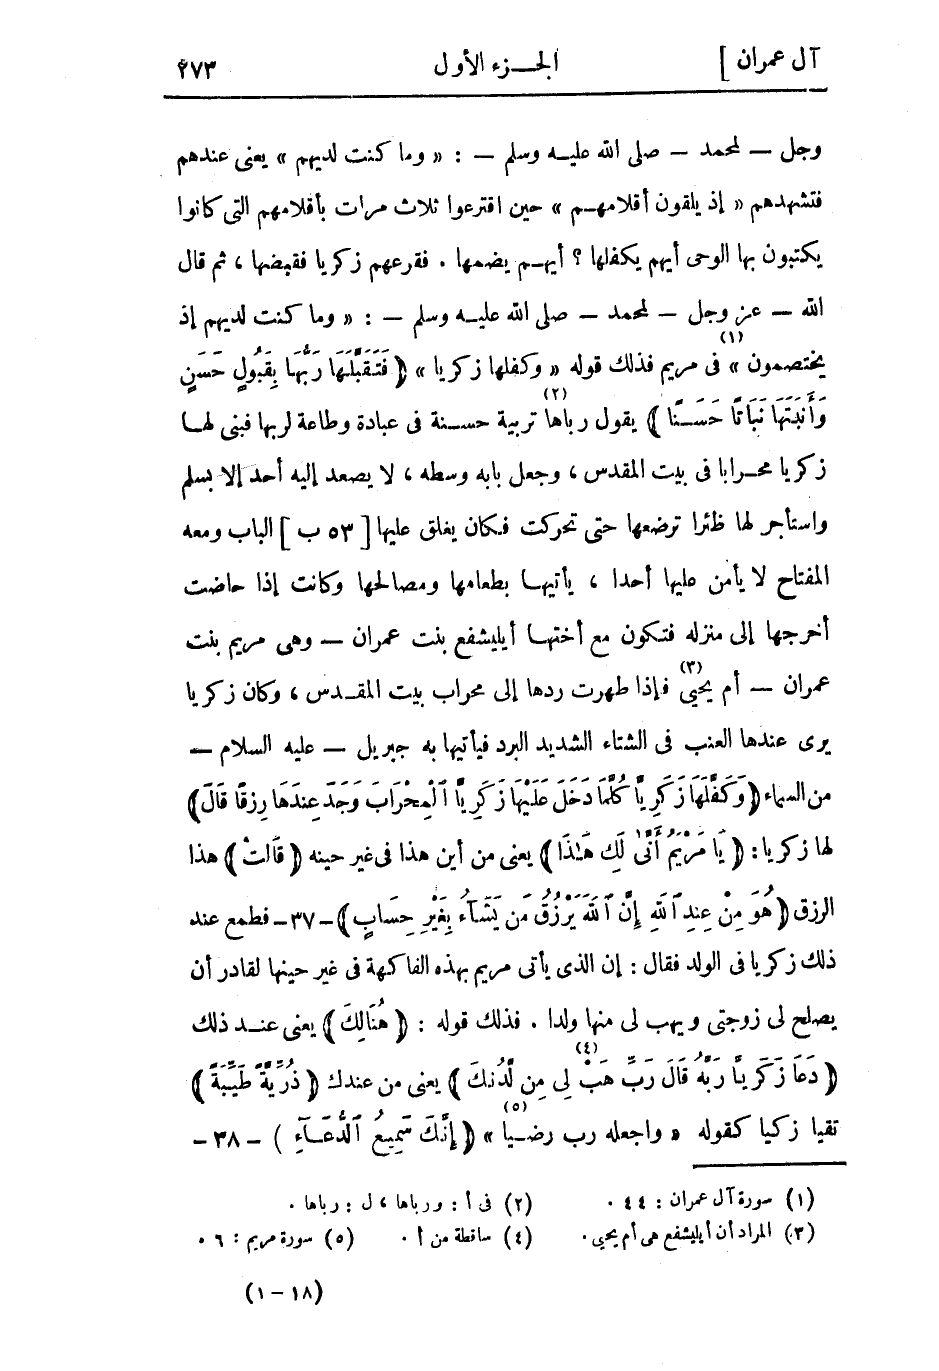 آل عمران ] الجـزء الأول ٢٧٣
وجل — لمحمد — صلى الله عليـه وسلم — : « وما كنت لديهم » يعنى عندهم
فتشهدهم « إذ يلقون أقلامهـم » حين اقترعوا ثلاث مرات بأقلامهم التى كانوا
يكتبون بها الوحى أيهم يكفلها ؟ أيهـم يضمها . فقرعهم زكريا فقبضها ، ثم قال
الله — عز وجل — لمحمد — صلى الله عليـه وسلم — : « وما كنت لديهم إذ
يختصمون » (١) فى مريم فذلك قوله « وكفلها زكريا » ﴿ فَتَقَبَّلَهَا رَبُّهَا بِقَبُولٍ حَسَنٍ
وَأَنبَتَهَا نَبَاتًا حَسَـنًا ﴾ يقول رباها (٢) تربية حسـنة فى عبادة وطاعة لربها فبنى لهـا
زكريا محـرابا فى بيت المقدس ، وجعل بابه وسطه ، لا يصعد إليه أحد إلا بسلم
واستأجر لها ظئرا ترضعها حتى تحركت فكان يغلق عليها [ ٥٣ ب ] الباب ومعه
المفتاح لا يأمن عليها أحدا ، يأتيهـا بطعامها ومصالحها وكانت إذا حاضت
أخرجها إلى منزله فتكون مع أختهـا أيليشفع بنت عمران — وهى مريم بنت
عمران — أم يحيى (٣) فإذا طهرت ردها إلى محراب بيت المقـدس ، وكان زكريا
يرى عندها العنب فى الشتاء الشديد البرد فيأتيها به جبريل — عليه السلام —
من السماء ﴿ وَكَفَّلَهَا زَكَرِيَّا كُلَّمَا دَخَلَ عَلَيْهَا زَكَرِيَّا ٱلْمِحْرَابَ وَجَدَ عِندَهَا رِزْقًا قَالَ ﴾
لها زكريا : ﴿ يَا مَرْيَمُ أَنَّىٰ لَكِ هَـٰذَا ﴾ يعنى من أين هذا فى غير حينه ﴿ قَالَتْ ﴾ هذا
الرزق ﴿ هُوَ مِنْ عِندِ ٱللَّهِ إِنَّ ٱللَّهَ يَرْزُقُ مَن يَشَآءُ بِغَيْرِ حِسَابٍ ﴾ – ٣٧ – فطمع عند
ذلك زكريا فى الولد فقال : إن الذى يأتى مريم بهذه الفاكهة فى غير حينها لقادر أن
يصلح لى زوجتى ويهب لى منها ولدا . فذلك قوله : ﴿ هُنَالِكَ ﴾ يعنى عنـد ذلك
﴿ دَعَا زَكَرِيَّا رَبَّهُ قَالَ رَبِّ هَبْ (٤) لِى مِن لَّدُنكَ ﴾ يعنى من عندك ﴿ ذُرِّيَّةً طَيِّبَةً ﴾
تقيا زكيا كقوله « واجعله رب رضـيا » (٥) ﴿ إِنَّكَ سَمِيعُ ٱلدُّعَـآءِ ﴾ – ٣٨ –
(١) سورة آل عمران : ٤٤ . (٢) فى أ : ورباها ، ل : رباها .
(٣) المراد أن أيليشفع هى أم يحيى . (٤) ساقطة من أ . (٥) سورة مريم : ٦ .
(١ – ١٨)